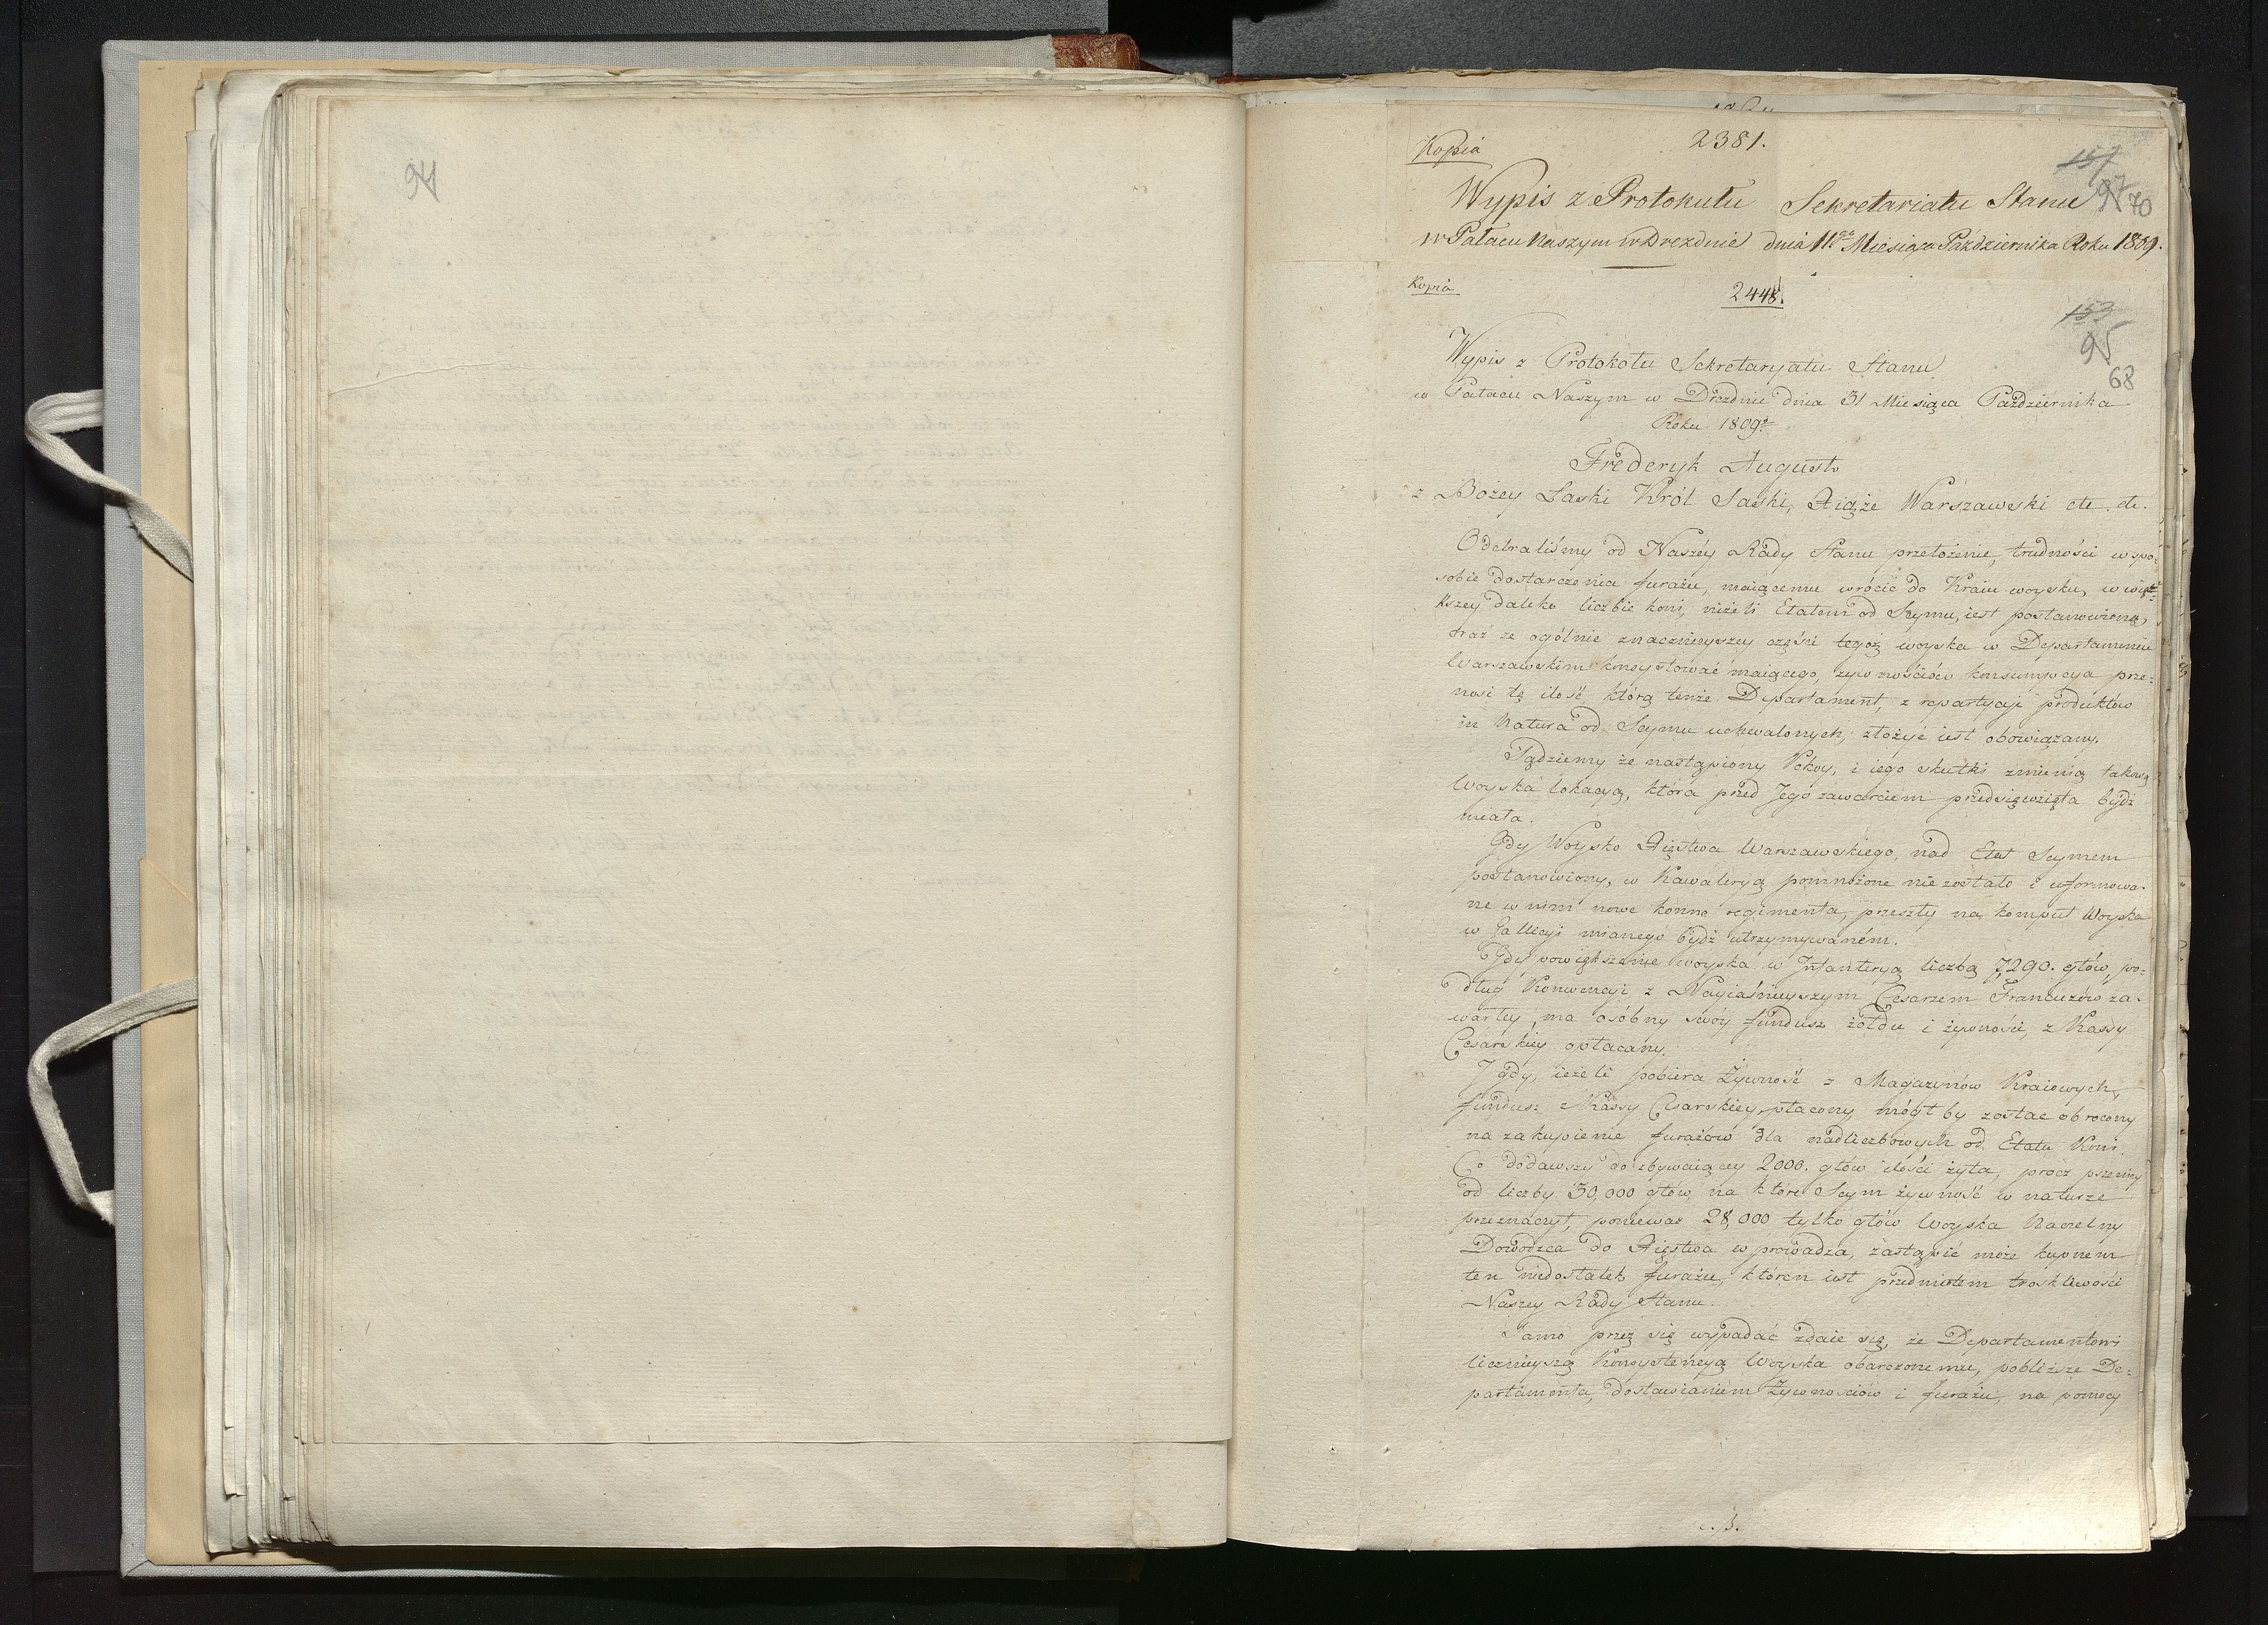 94
Kopia
2381.
157
97 70
Wypis z Protokułu Sekretariatu Stanu
w Pałacu Naszym w Dreźdnie dnia 11go Miesiąca Października Roku 1809.
Kopia
2448.
153
95
68
Wypis z Protokołu Sekretaryatu Stanu
w Pałacu Naszym w Dreźdnie dnia 31 Miesiąca Października
Roku 1809o
Frederyk August
z Bożey Łaski Król Saski, Xiąże Warszawski etc. etc.
Odebraliśmy od Naszéy Rady Stanu przełożenie, trudności w spo-
sobie dostarczenia furażu, maiącemu wrócić do Kraiu woysku, w wię-
kszey daleko liczbie koni, niżeli Etatem od Seymu, iest postanowioną,
oraz że ogólnie znacznieyszey części tegoż woyska w Departamencie
Warszawskim konsystować maiącego, żywnościów konsumpcya prze-
nosi tę ilość którą tenże Departament, z repartycyi produktów
in Natura od Seymu uchwalonych, złożyć iest obowiązany.
Sądziemy że nastąpiony Pokoy, i iego skutki zmienią takową
Woyska lokacyą, która przed Jego zawarciem przedsięwzięta bydź
miała.
Gdy Woysko Xięstwa Warszawskiego, nad Etat Seymem
postanowiony, w Kawaleryą pomnożone nie zostało i uformowa-
ne w nim nowe konne regimenta, przeszły na komput Woyska
w Gallicyi mianego bydź utrzymywaném.
Gdy powiększenie woyska w Infanteryą liczbą 7,290. głów, po-
dług Konwencyi z Nayiaśnieyszym Cesarzem Francuzów za-
wartey, ma osóbny swóy fundusz żołdu i żywności, z Kassy
Cesarskiéy opłacany.
I gdy, ieżeli pobiera Żywność z Magazynów Kraiowych,
fundusz z Kassy Cesarskiey płacony, mógłby zostać obrócony
na zakupienie furażów dla nadliczbowych od Etatu Koni.
Co dodawszy do zbywaiącey 2000. głów ilości żyta, prócz pszenicy
od liczby 30,000 głów, na które Seym żywność w naturze
przeznaczył, ponieważ 28,000 tylko głów Woyska Naczelny
Dowódzca do Xięstwa wprowadza, zastąpić może kupnem
ten niedostatek furażu, któren iest przedmiotem troskliwości
Naszey Rady Stanu.
Samo przez się wypadać zdaie się, że Departamentowi
licznieyszą Konsystencyą Woyska obarczonemu, pobliższe De-
partamenta, dostawianiem Żywnościów i furażu, na pomocy